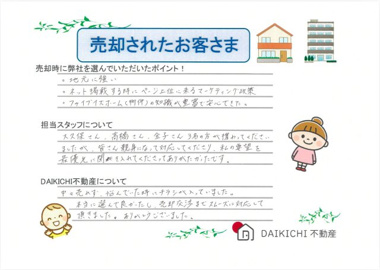 売却されたお客さま
売却時に弊社を選んでいただいたポイント!
・地元に強い
・ネット掲載する時にページ上位に来るマーケティング政策
・の知識が豊富で安心できた。
担当スタッフについて
大久保さん、高橋さん、金子さん 3名の方が携わってくださいましたが、
皆さん親身になって対応してくださり、私の希望を
最優先に聞き入れてくださってありがたかったです。
DAIKICHI不動産について
中々売れず、悩んでいた時にチラシが入っていました。
本当に選んで良かったし、売却交渉までスムーズに対応して
頂きました。ありがとうございました。
DAIKICHI 不動産